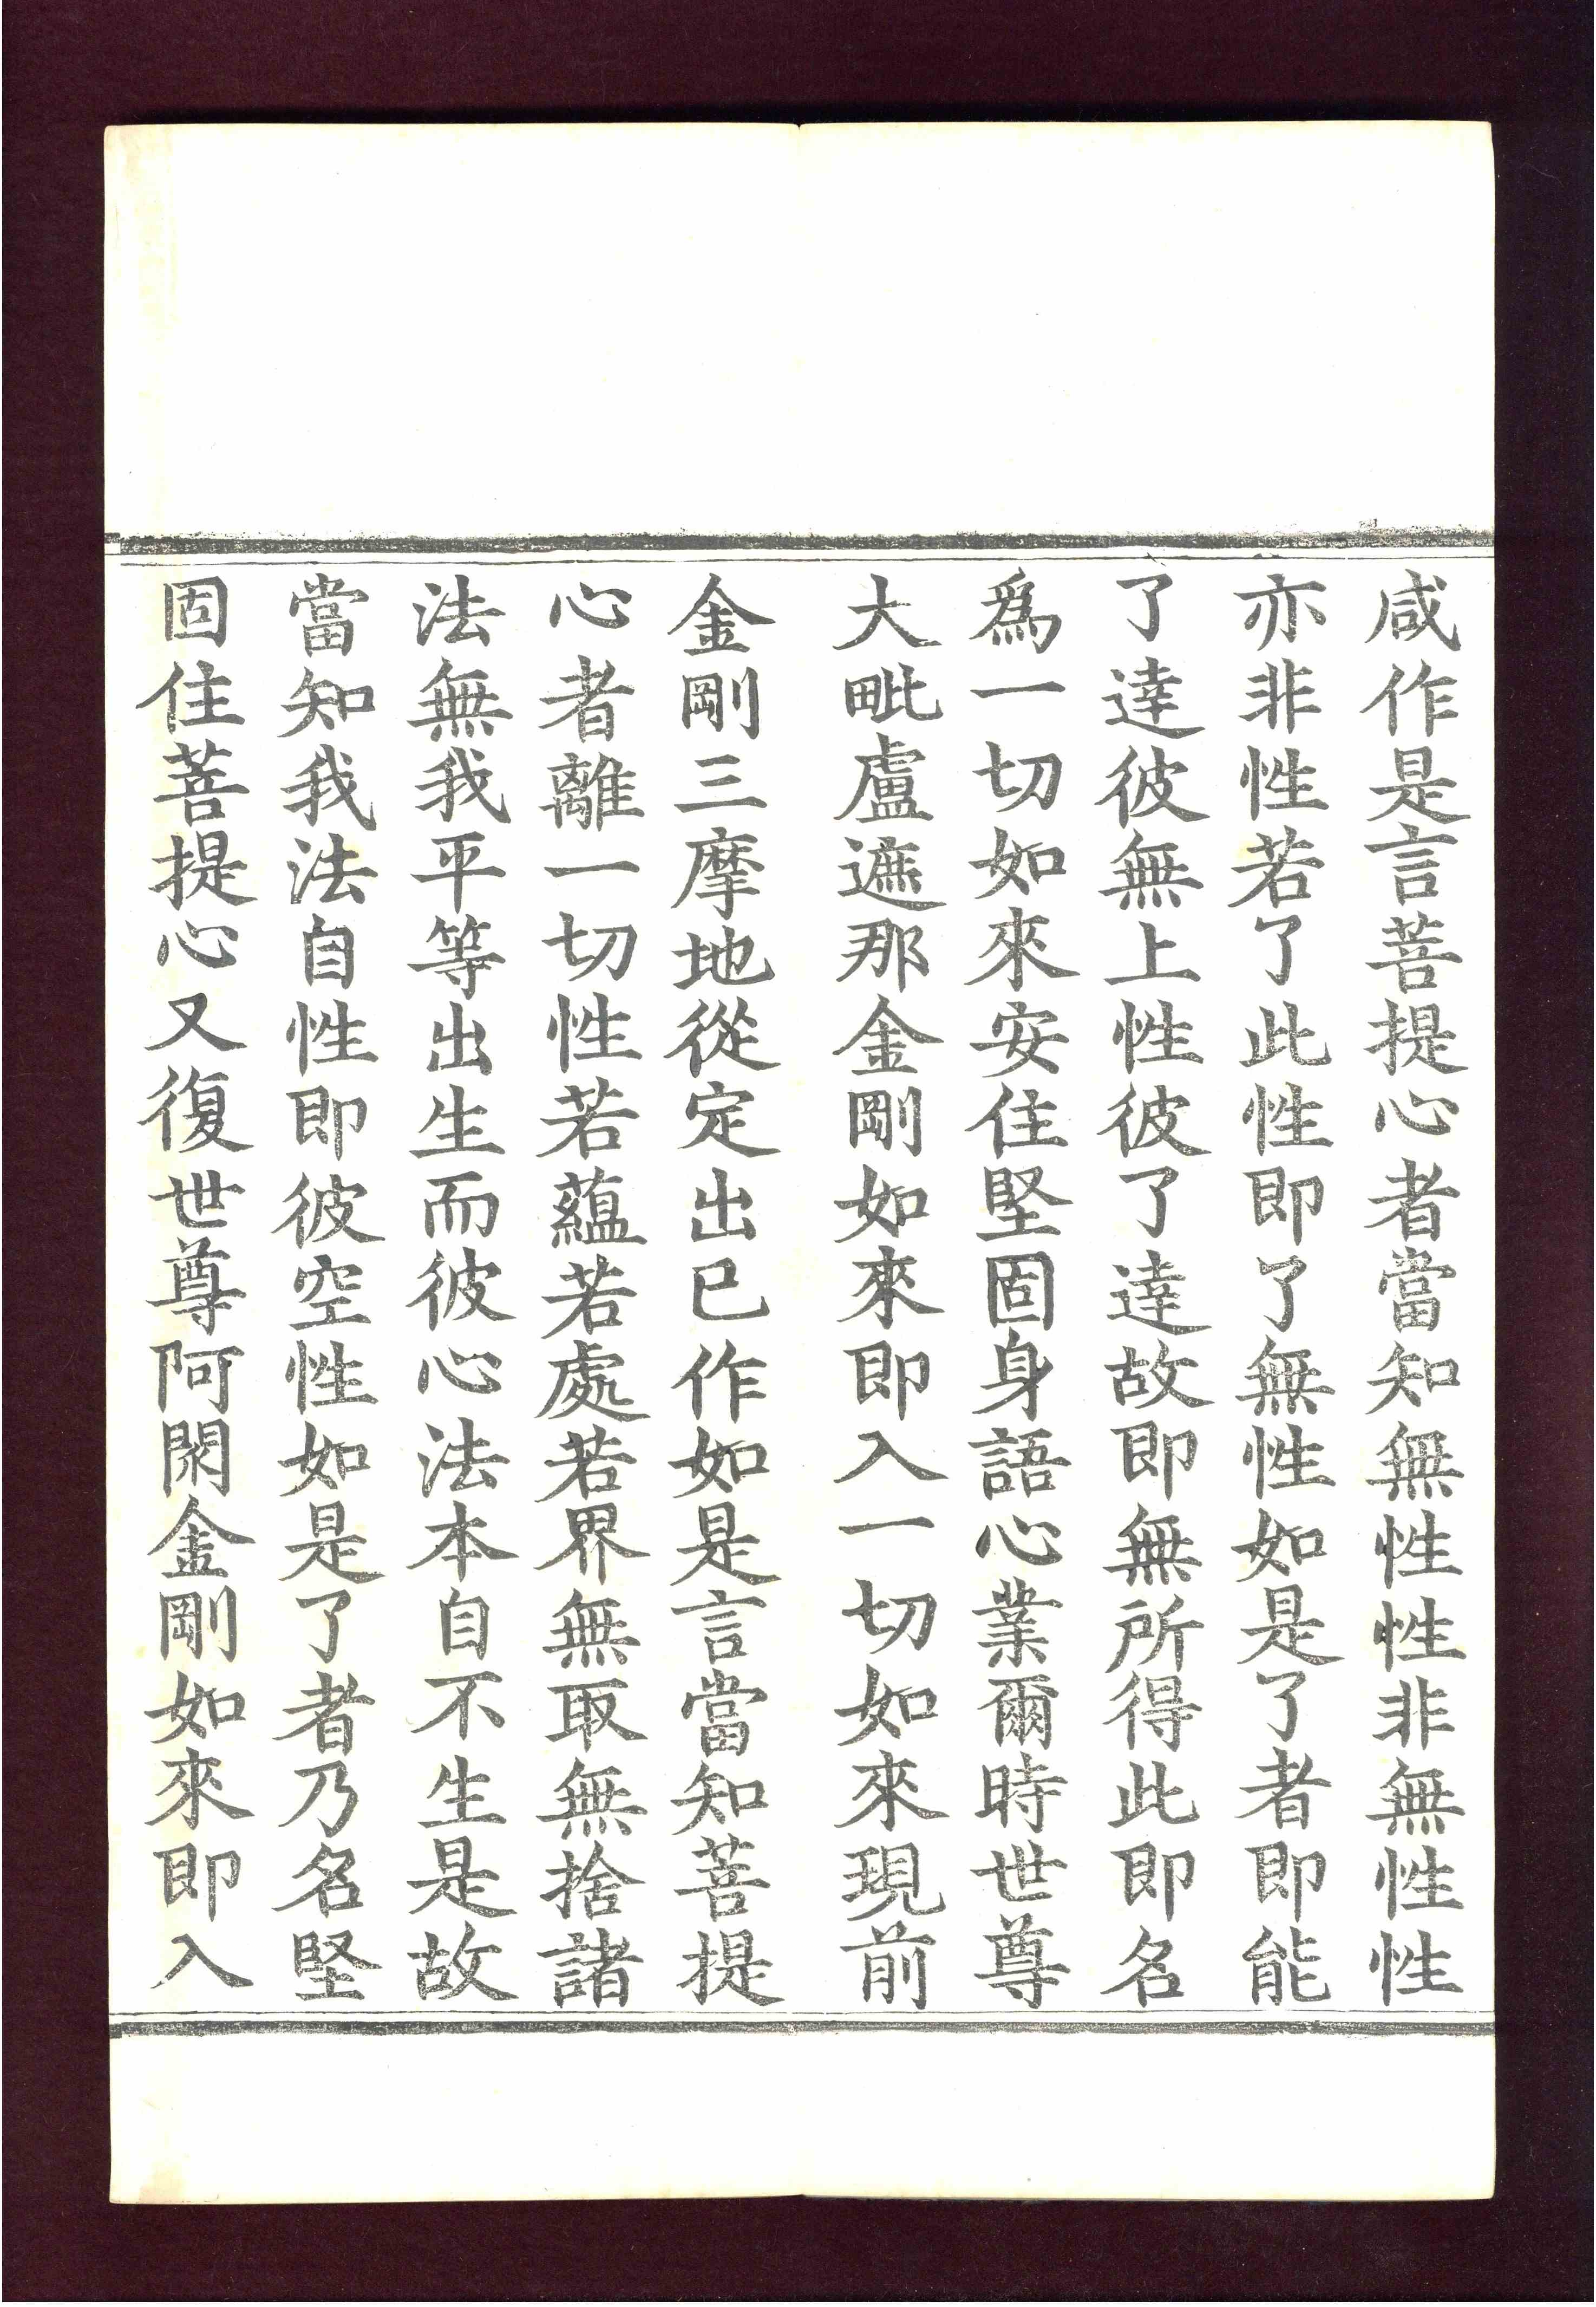 咸作是言菩提心者當知無性性非無性性
亦非性若了此性即了無性如是了者即能
了達彼無上性彼了達故即無所得此即名
爲一切如來安住堅固身語心業爾時世尊
大毗盧遮那金剛如來即入一切如來現前
金剛三摩地從定出已作如是言當知菩提
心者離一切性若蘊若處若界無取無捨諸
法無我平等出生而彼心法本自不生是故
當知我法自性即彼空性如是了者乃名堅
固住菩提心又復世尊阿閦金剛如來即入